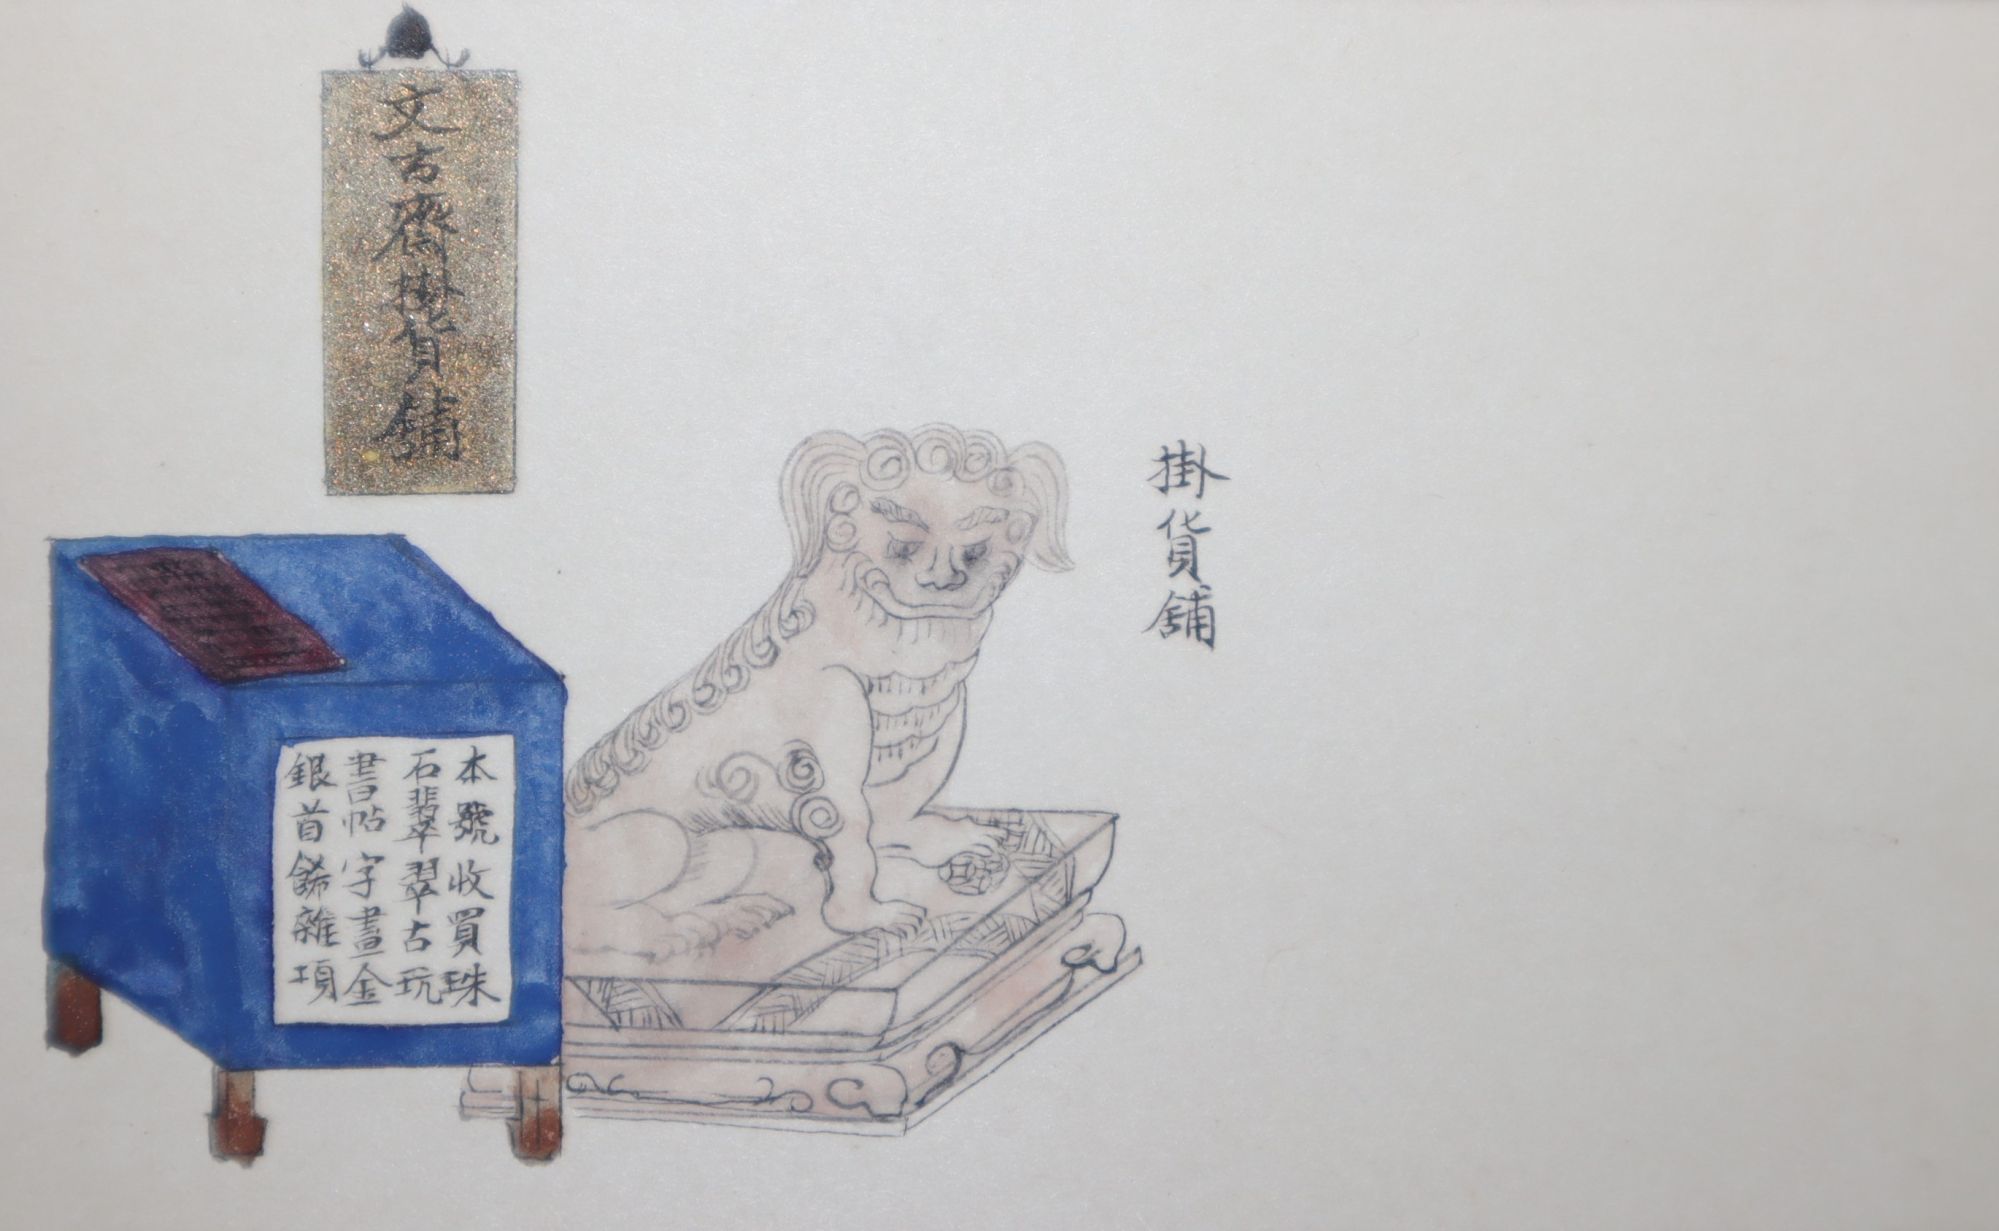 文古齋掛貨舖
掛貨舖
本號收買珠
石翡翠翠古玩
書帖字畫金
銀首餙雜項